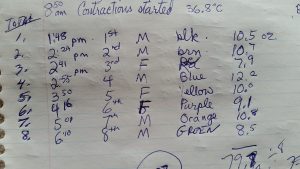 8:50 am Contractions started 36.8°C
1. 1:48 pm 1st M blk. 10.5 oz
2. 2:24 pm 2nd M brn. 10.7
3. 2:41 pm 3rd F 7.9
4. 2:55 4th M Blue 12.2
5. 3:50 5th F Yellow 10.0
6. 4:16 6th F Purple 9.1
7. 5:09 7th M Orange 10.8
8. 6:10 8th M GREEN 8.5